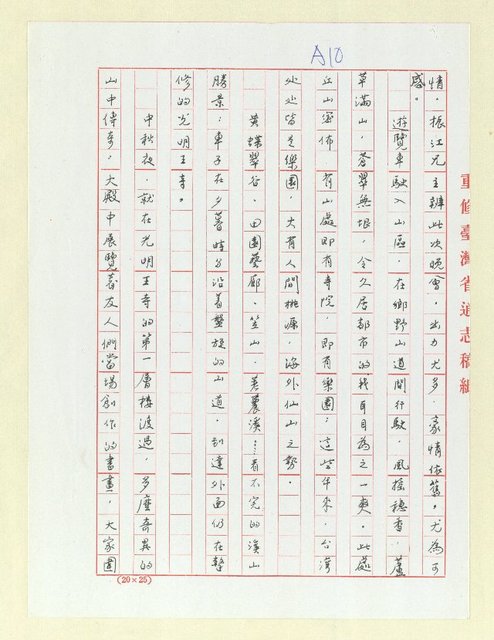 A10
重修臺灣省通志稿紙
情。振江兄主辦此次晚會，出力尤多，豪情依舊，尤為可
感。
遊覽車駛入山區，在鄉野山道間行駛，風搖穗香，蘆
草滿山，蒼翠無垠，令久居都市的我耳目為之一爽。此處
江山密佈，有山處即有寺院，即有樂園；這些年來，台灣
處處皆是樂園，大有人間桃源、海外仙山之勢。
黃蝶翠谷、田園藝廊、笠山、美濃溪……看不完的溪山
勝景；車子在夕暮時分沿着盤旋的山道，到達外面仍在整
修的光明王寺。
中秋夜，就在光明王寺的第一層樓渡過，多麼奇異的
山中傳奇，大殿中展覽着友人們當場創作的書畫，大家圍
(20×25)